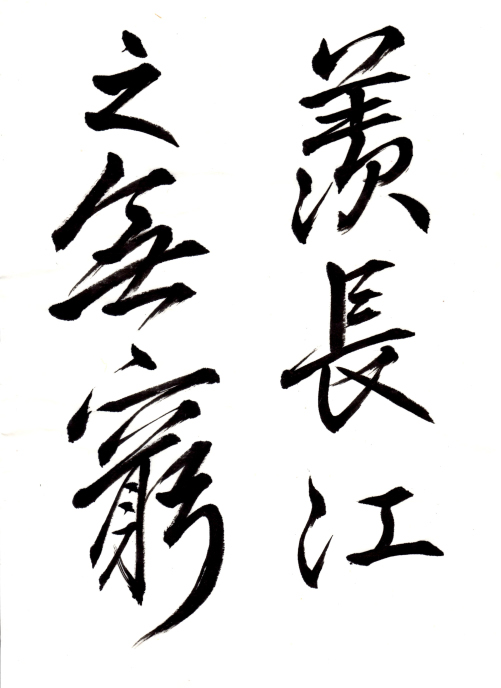 羨長江
之無窮